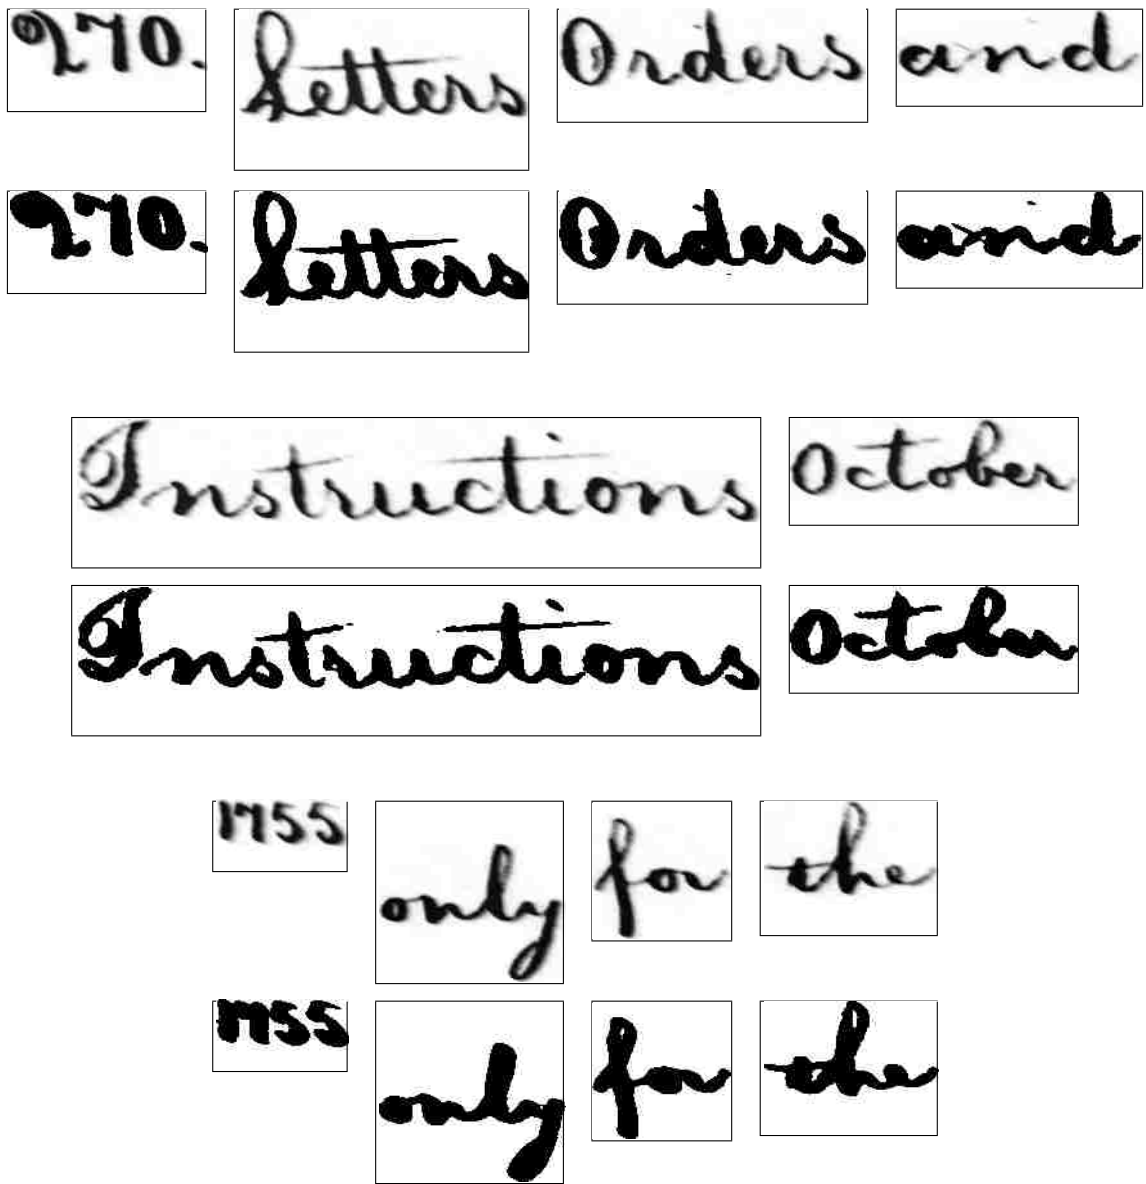 270. Letters Orders and
270. Letters Orders and
Instructions October
Instructions October
1755 only for the
1755 only for the